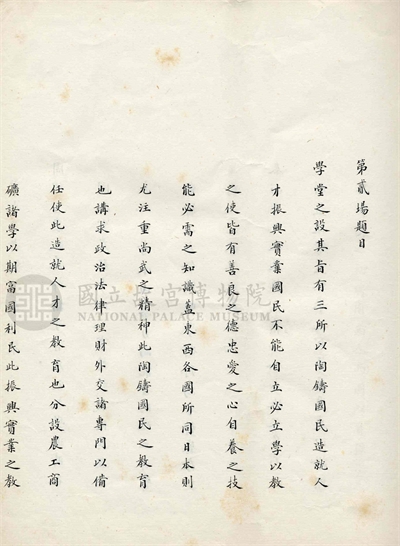 第貳場題目
學堂之設其旨有三所以陶鑄國民造就人
才振興實業國民不能自立必立學以教
之使皆有善良之德忠愛之心自養之技
能必需之知識蓋東西各國所同日本則
尤注重尚武之精神此陶鑄國民之教育
也講求政治法律理財外交諸專門以備
任使此造就人才之教育也分設農工商
礦諸學以期富國利民此振興實業之教
國立故宮博物院
NATIONAL PALACE MUSEUM